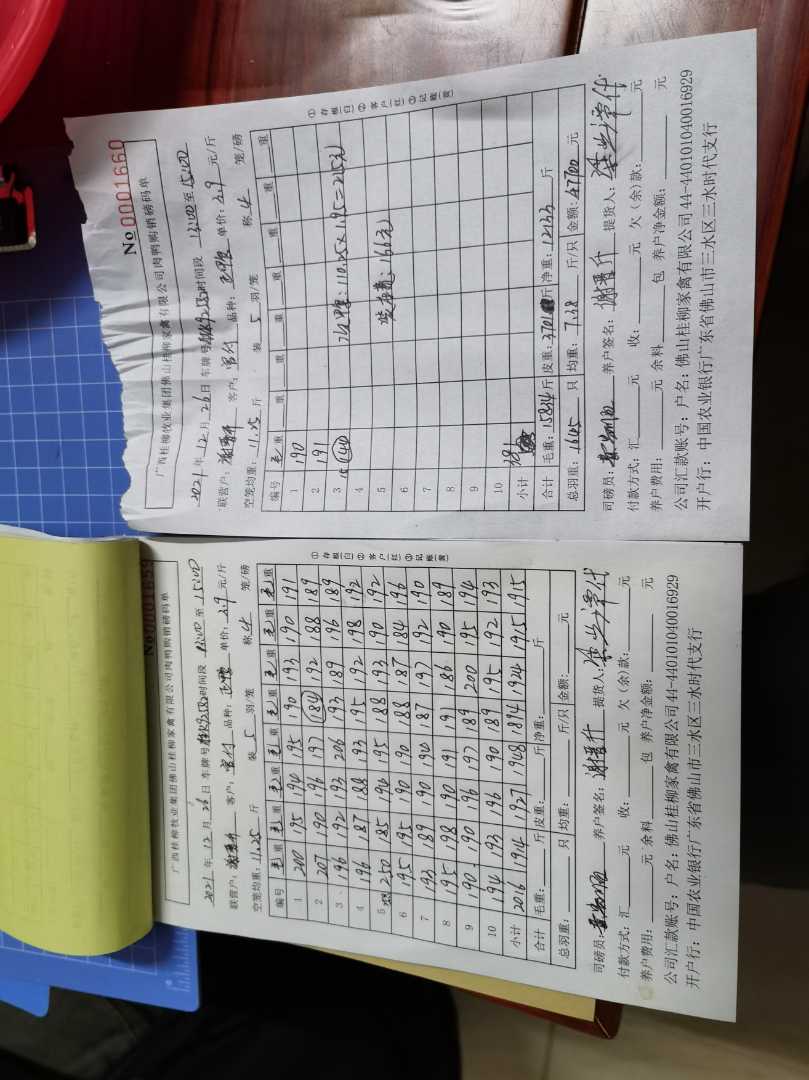 No 0001659
广西桂柳牧业集团佛山桂柳家禽有限公司肉鸭购销磅码单
2021 年 12 月 26 日 车牌号 时间段 13:00 至 15:00
联营户: 谢晋升 客户: 品种: 正鸭 单价: 3.9 元/斤
空笼均重: 11.25 斤 装 5 羽/笼 称 4 笼/磅
编号 毛重 毛重 毛重 毛重 毛重 毛重 毛重 毛重
1 200 195 194 195 190 193 190 191
2 207 190 196 197 184 192 188 189
3 196 192 193 206 193 189 196 189
4 196 187 188 193 195 192 198 192
5 250 185 194 195 188 193 190 192
6 195 195 190 190 188 187 184 196
7 193 189 190 194 187 197 192 190
8 195 198 190 191 191 186 190 189
9 190 190 196 197 189 200 195 194
10 194 193 196 190 189 195 192 193
小计 2016 1914 1927 1948 1894 1924 1915 1915
合计 毛重: 斤 皮重: 斤 净重: 斤
总羽重: 只 均重: 斤/只 金额: 元
司磅员: 养户签名: 谢晋升 提货人:
付款方式: 汇 元 收: 元 欠(余)款: 元
养户费用: 元 余料 包 养户净金额: 元
公司汇款账号: 户名: 佛山桂柳家禽有限公司 44-440101040016929
开户行: 中国农业银行广东省佛山市三水区三水时代支行
①存根(白)②客户(红)③记账(黄)
No 0001660
广西桂柳牧业集团佛山桂柳家禽有限公司肉鸭购销磅码单
2021 年 12 月 26 日 车牌号 时间段 13:00 至 15:00
联营户: 谢晋升 客户: 品种: 正鸭 单价: 3.9 元/斤
空笼均重: 11.25 斤 装 5 羽/笼 称 4 笼/磅
编号 毛重 重 重 重 重 重 重 重
1 190
2 191
3
4
5
6
7
8
9
10
110.25×1.95=215元
166元
小计 381
合计 毛重: 15834 斤 皮重: 3701 斤 净重: 12133 斤
总羽重: 1645 只 均重: 7.38 斤/只 金额: 47100 元
司磅员: 养户签名: 谢晋升 提货人:
付款方式: 汇 元 收: 元 欠(余)款: 元
养户费用: 元 余料 包 养户净金额: 元
公司汇款账号: 户名: 佛山桂柳家禽有限公司 44-440101040016929
开户行: 中国农业银行广东省佛山市三水区三水时代支行
①存根(白)②客户(红)③记账(黄)